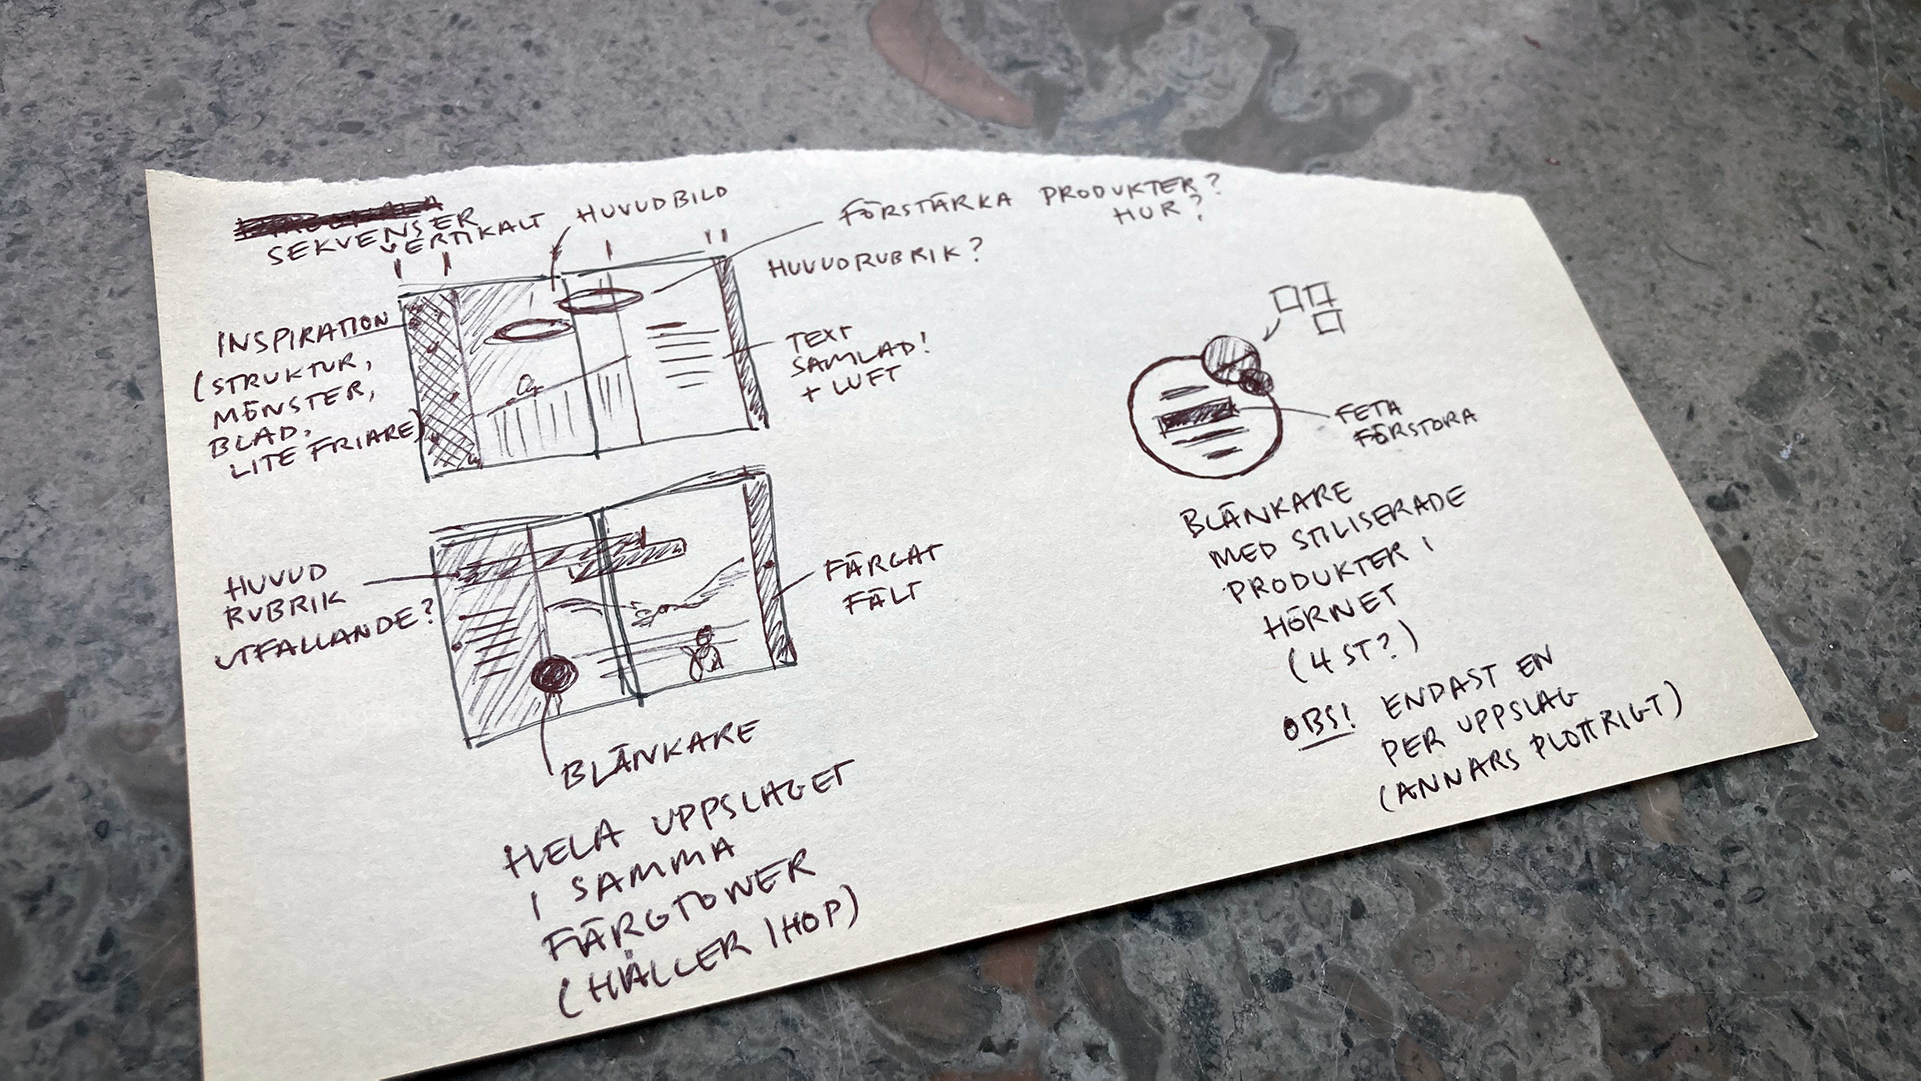 SEKVENSER
VERTIKALT
HUVUDBILD
FÖRSTÄRKA PRODUKTER?
HUR?
HUVUDRUBRIK?
INSPIRATION
(STRUKTUR,
MÖNSTER,
BLAD,
LITE FRIARE)
TEXT
SAMLAD!
+ LUFT
HUVUD
RUBRIK
UTFALLANDE?
FÄRGAT
FÄLT
BLÄNKARE
HELA UPPSLAGET
I SAMMA
FÄRGTONER
(HÅLLER IHOP)
FETA
FÖRSTORA
BLÄNKARE
MED STILISERADE
PRODUKTER I
HÖRNET
(4 ST?)
OBS! ENDAST EN
PER UPPSLAG
(ANNARS PLOTTRIGT)